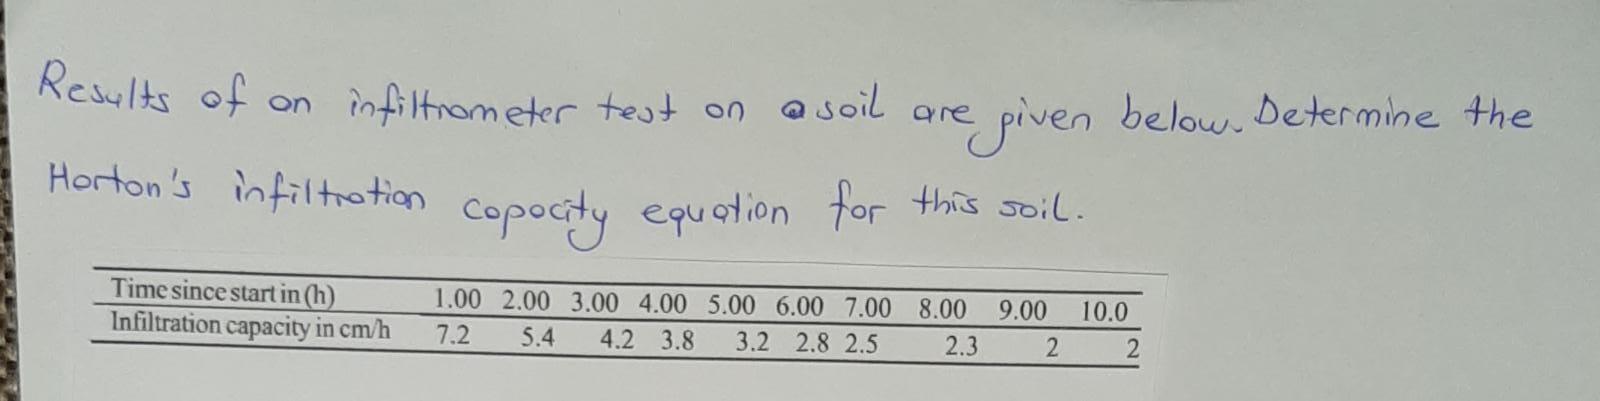 Results of an infiltrometer test on a soil are given below. Determine the
Horton's infiltration capacity equation for this soil.
Time since start in (h) 1.00 2.00 3.00 4.00 5.00 6.00 7.00 8.00 9.00 10.0
Infiltration capacity in cm/h 7.2 5.4 4.2 3.8 3.2 2.8 2.5 2.3 2 2